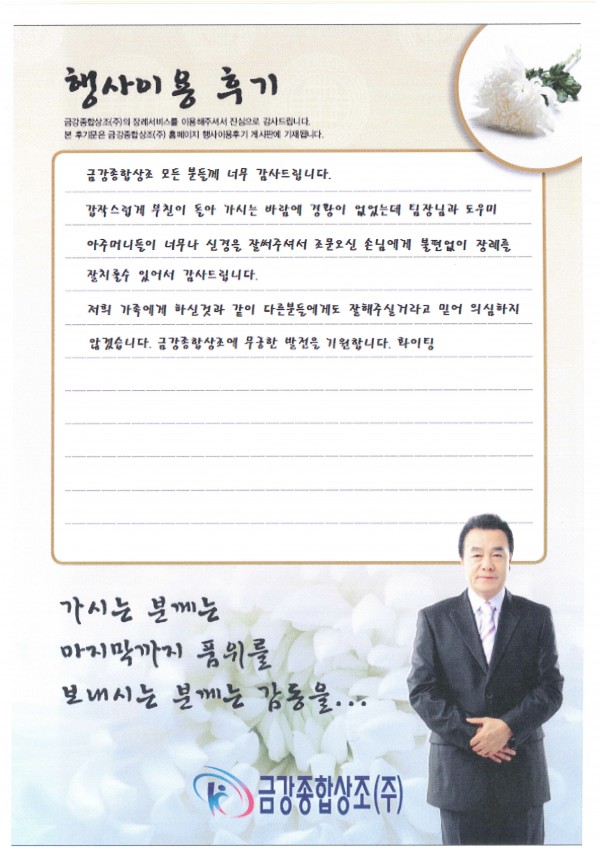 행사이용 후기
금강종합상조(주)의 장례서비스를 이용해주셔서 진심으로 감사드립니다.
본 후기문은 금강종합상조(주) 홈페이지 행사이용후기 게시판에 기재됩니다.
금강종합상조 모든 분들께 너무 감사드립니다.
갑작스럽게 부친이 돌아 가시는 바람에 경황이 없었는데 팀장님과 도우미
아주머니들이 너무나 신경을 잘써주셔서 조문오신 손님에게 불편없이 장례를
잘치를수 있어서 감사드립니다.
저희 가족에게 하신것과 같이 다른분들에게도 잘해주실거라고 믿어 의심하지
않겠습니다. 금강종합상조에 무궁한 발전을 기원합니다. 화이팅
가시는 분께는
마지막까지 품위를
보내시는 분께는 감동을...
금강종합상조(주)